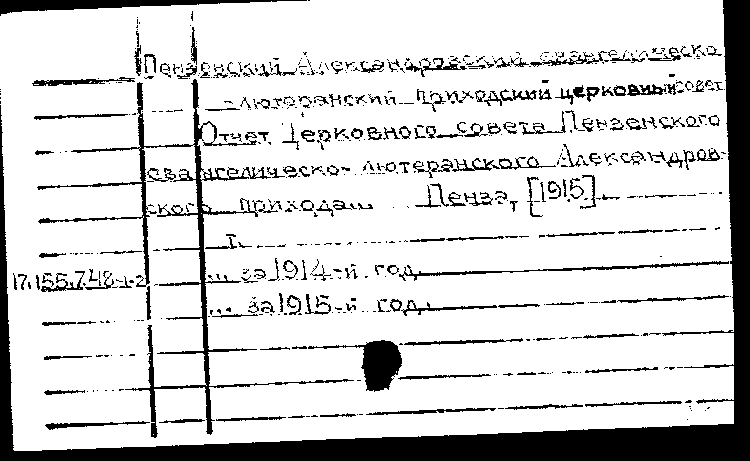 Пензенский Александровский евангелическо
-лютеранский приходский церковный совет
Отчет Церковного совета Пензенского
евангелическо-лютеранского Александров-
ского прихода... Пенза, [1915].
т.
17.155.7.48-1-2 ... за 1914-й год.
... за 1915-й год.